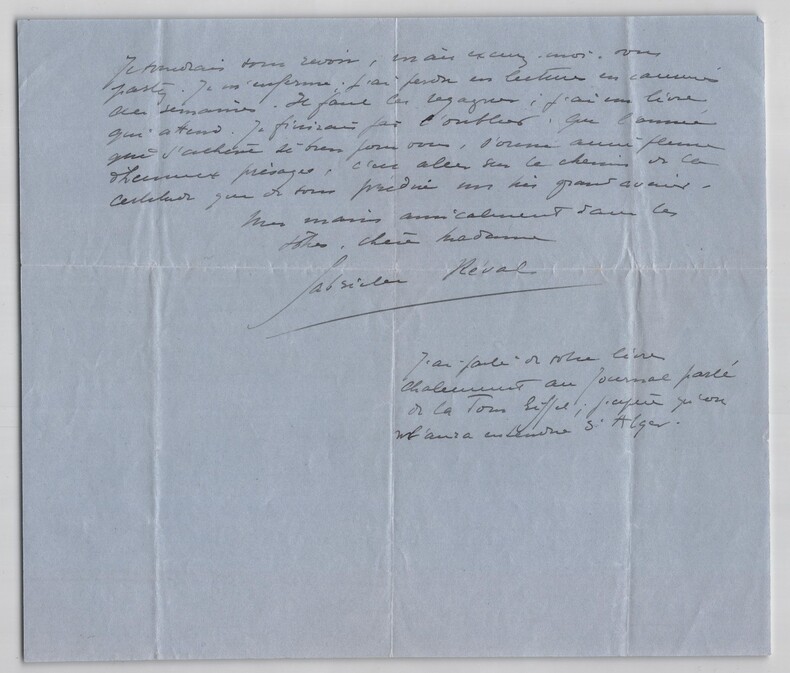 Je voudrais vous revoir, mais excusez-moi. vous
partez. Je m'enferme. j'ai perdu en lectures en
des semaines. Il faut les regagner; j'ai un livre
qui attend. Je finirais par l'oublier. Que l'année
qui s'achève si bien pour vous, d'une année pleine
d'heureux présages, c'est aller sur le chemin de la
certitude que de vous prédire un très grand avenir.
Mes mains amicalement dans les
vôtres, chère madame
Gabrielle Réval
J'ai parlé de votre livre
chalement au Journal parlé
de la Tour Eiffel; j'espère qu'on
m'aura entendue d'Alger.